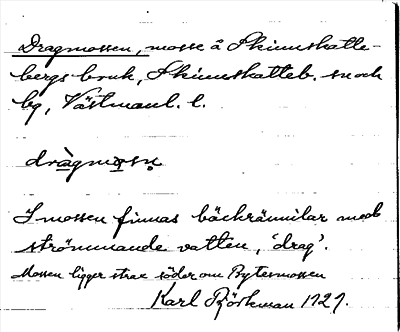 Dragmossen, mosse å Skinnskatte-
bergs bruk, Skinnskatteb. sn och
bg, Västmanl. l.
dràgmɔsn̥
I mossen finnas bäckrännilar med
strömmande vatten, 'drag'.
Mossen ligger strax söder om Bytesmossen
Karl Björkman 1929.